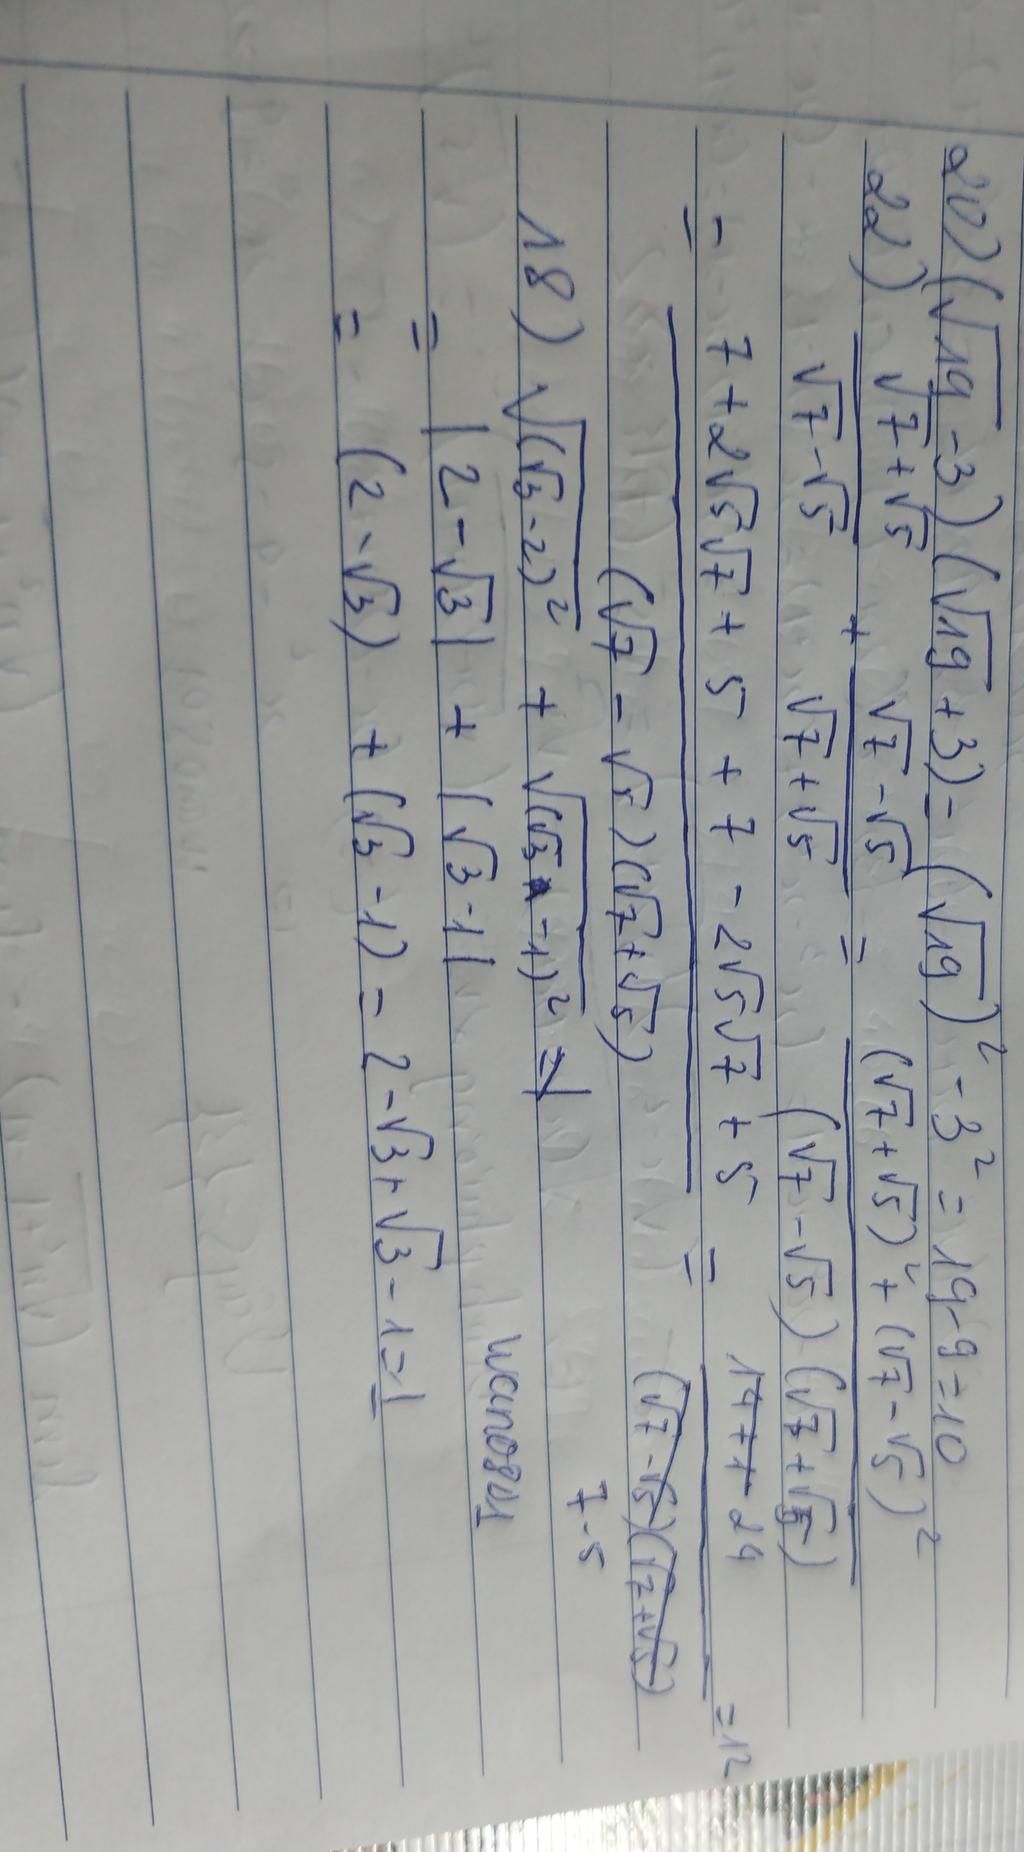 20) (√19 - 3)(√19 + 3) = (√19)² - 3² = 19 - 9 = 10
22) (√7 + √5)/(√7 - √5) + (√7 - √5)/(√7 + √5) = ((√7 + √5)² + (√7 - √5)²)/((√7 - √5)(√7 + √5))
= (7 + 2√5√7 + 5 + 7 - 2√5√7 + 5)/((√7 - √5)(√7 + √5)) = 24/(7 - 5) = 12
18) √(√3 - 2)² + √(√3 - 1)² =
= |2 - √3| + |√3 - 1|
= (2 - √3) + (√3 - 1) = 2 - √3 + √3 - 1 = 1